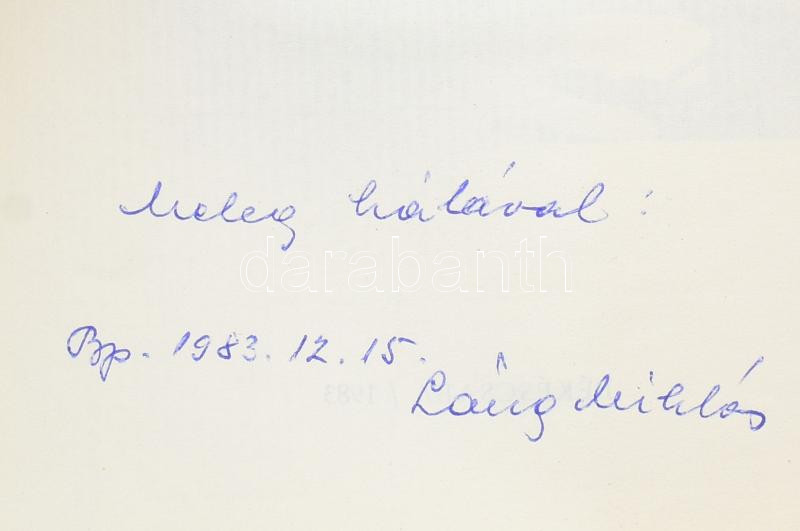 Meleg hálával:
darabanth
Bp. 1983. 12. 15.
Láng Miklós
/ 1983